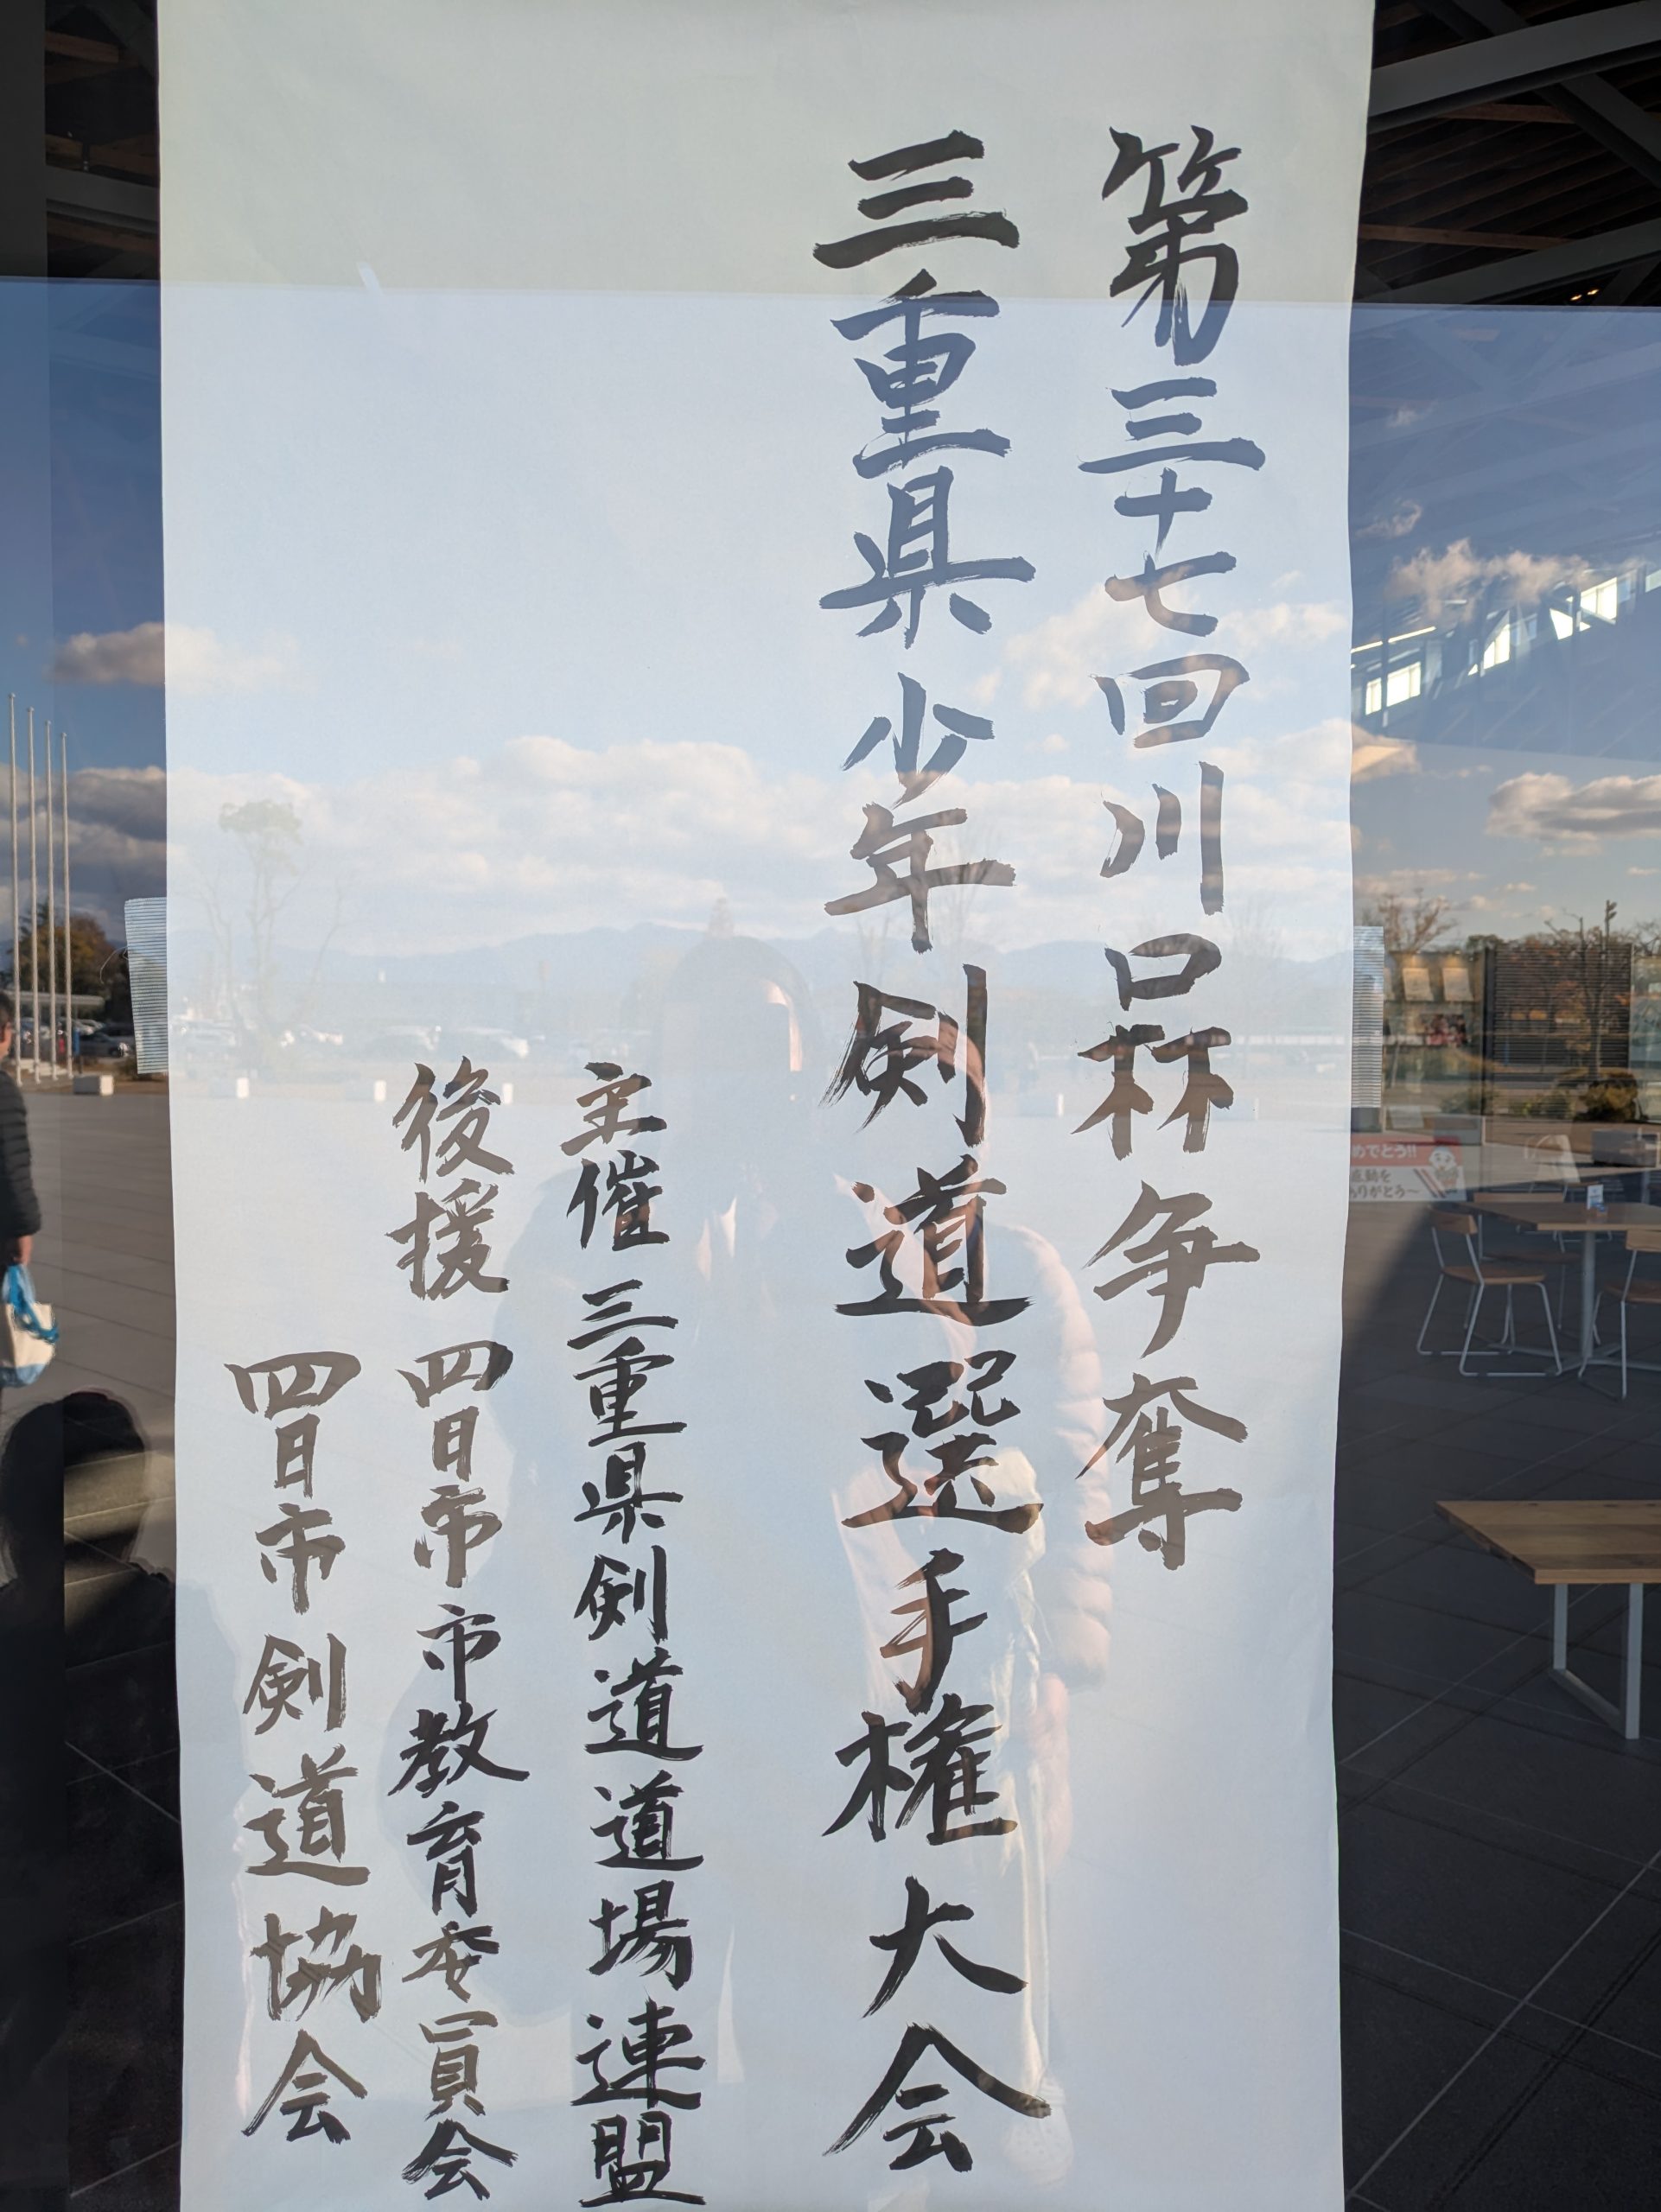 第三十七回川口杯争奪
三重県少年剣道選手権大会
主催 三重県剣道道場連盟
後援 四日市市教育委員会
四日市剣道協会
めでとう!!
ありがとう〜